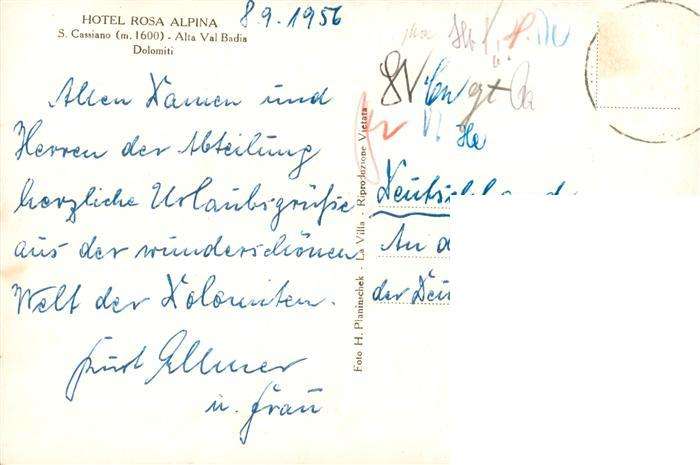 HOTEL ROSA ALPINA
S. Cassiano (m. 1600) - Alta Val Badia
Dolomiti
8.9.1956
Allen Damen und
Herren der Abteilung
herzliche Urlaubsgrüße
aus der wunderschönen
Welt der Dolomiten.
Kurt Ellmer
u. Frau
Foto H. Planinschek - La Villa - Riproduzione Vietata
He
An d
der Deu